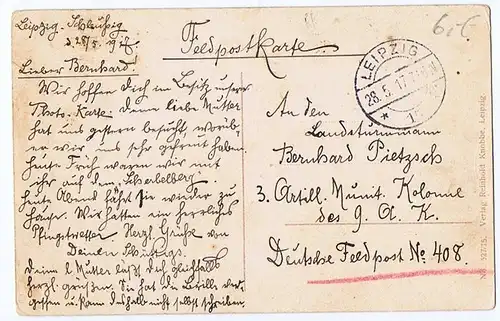 Leipzig-Schleußig
d. 28/5. 1917.
Feldpostkarte
Lieber Bernhard!
Wir hoffen Dich im Besitz unserer
Photo-Karte. Deine liebe Mutter
hat uns gestern besucht, worüb-
er wir uns sehr gefreut haben.
Heute Früh waren wir mit
ihr auf dem Scherbelberg.
Heute Abend fährt sie wieder zu
Hause. Wir hatten ein herrliches
Pfingstwetter. Herzl. Grüße von
Deinen
Deine l. Mutter läßt Dich gleichfalls
herzl. grüßen. Sie hat die Brille ver-
gessen u. kann deshalb nicht selbst schreiben.
LEIPZIG
28.5.17
An den
Landsturmmann
Bernhard Pietzsch
3. Artill. Munit. Kolonne
des 9. A. K.
Deutsche Feldpost No 408.
Verlag Reinhold Knobbe, Leipzig